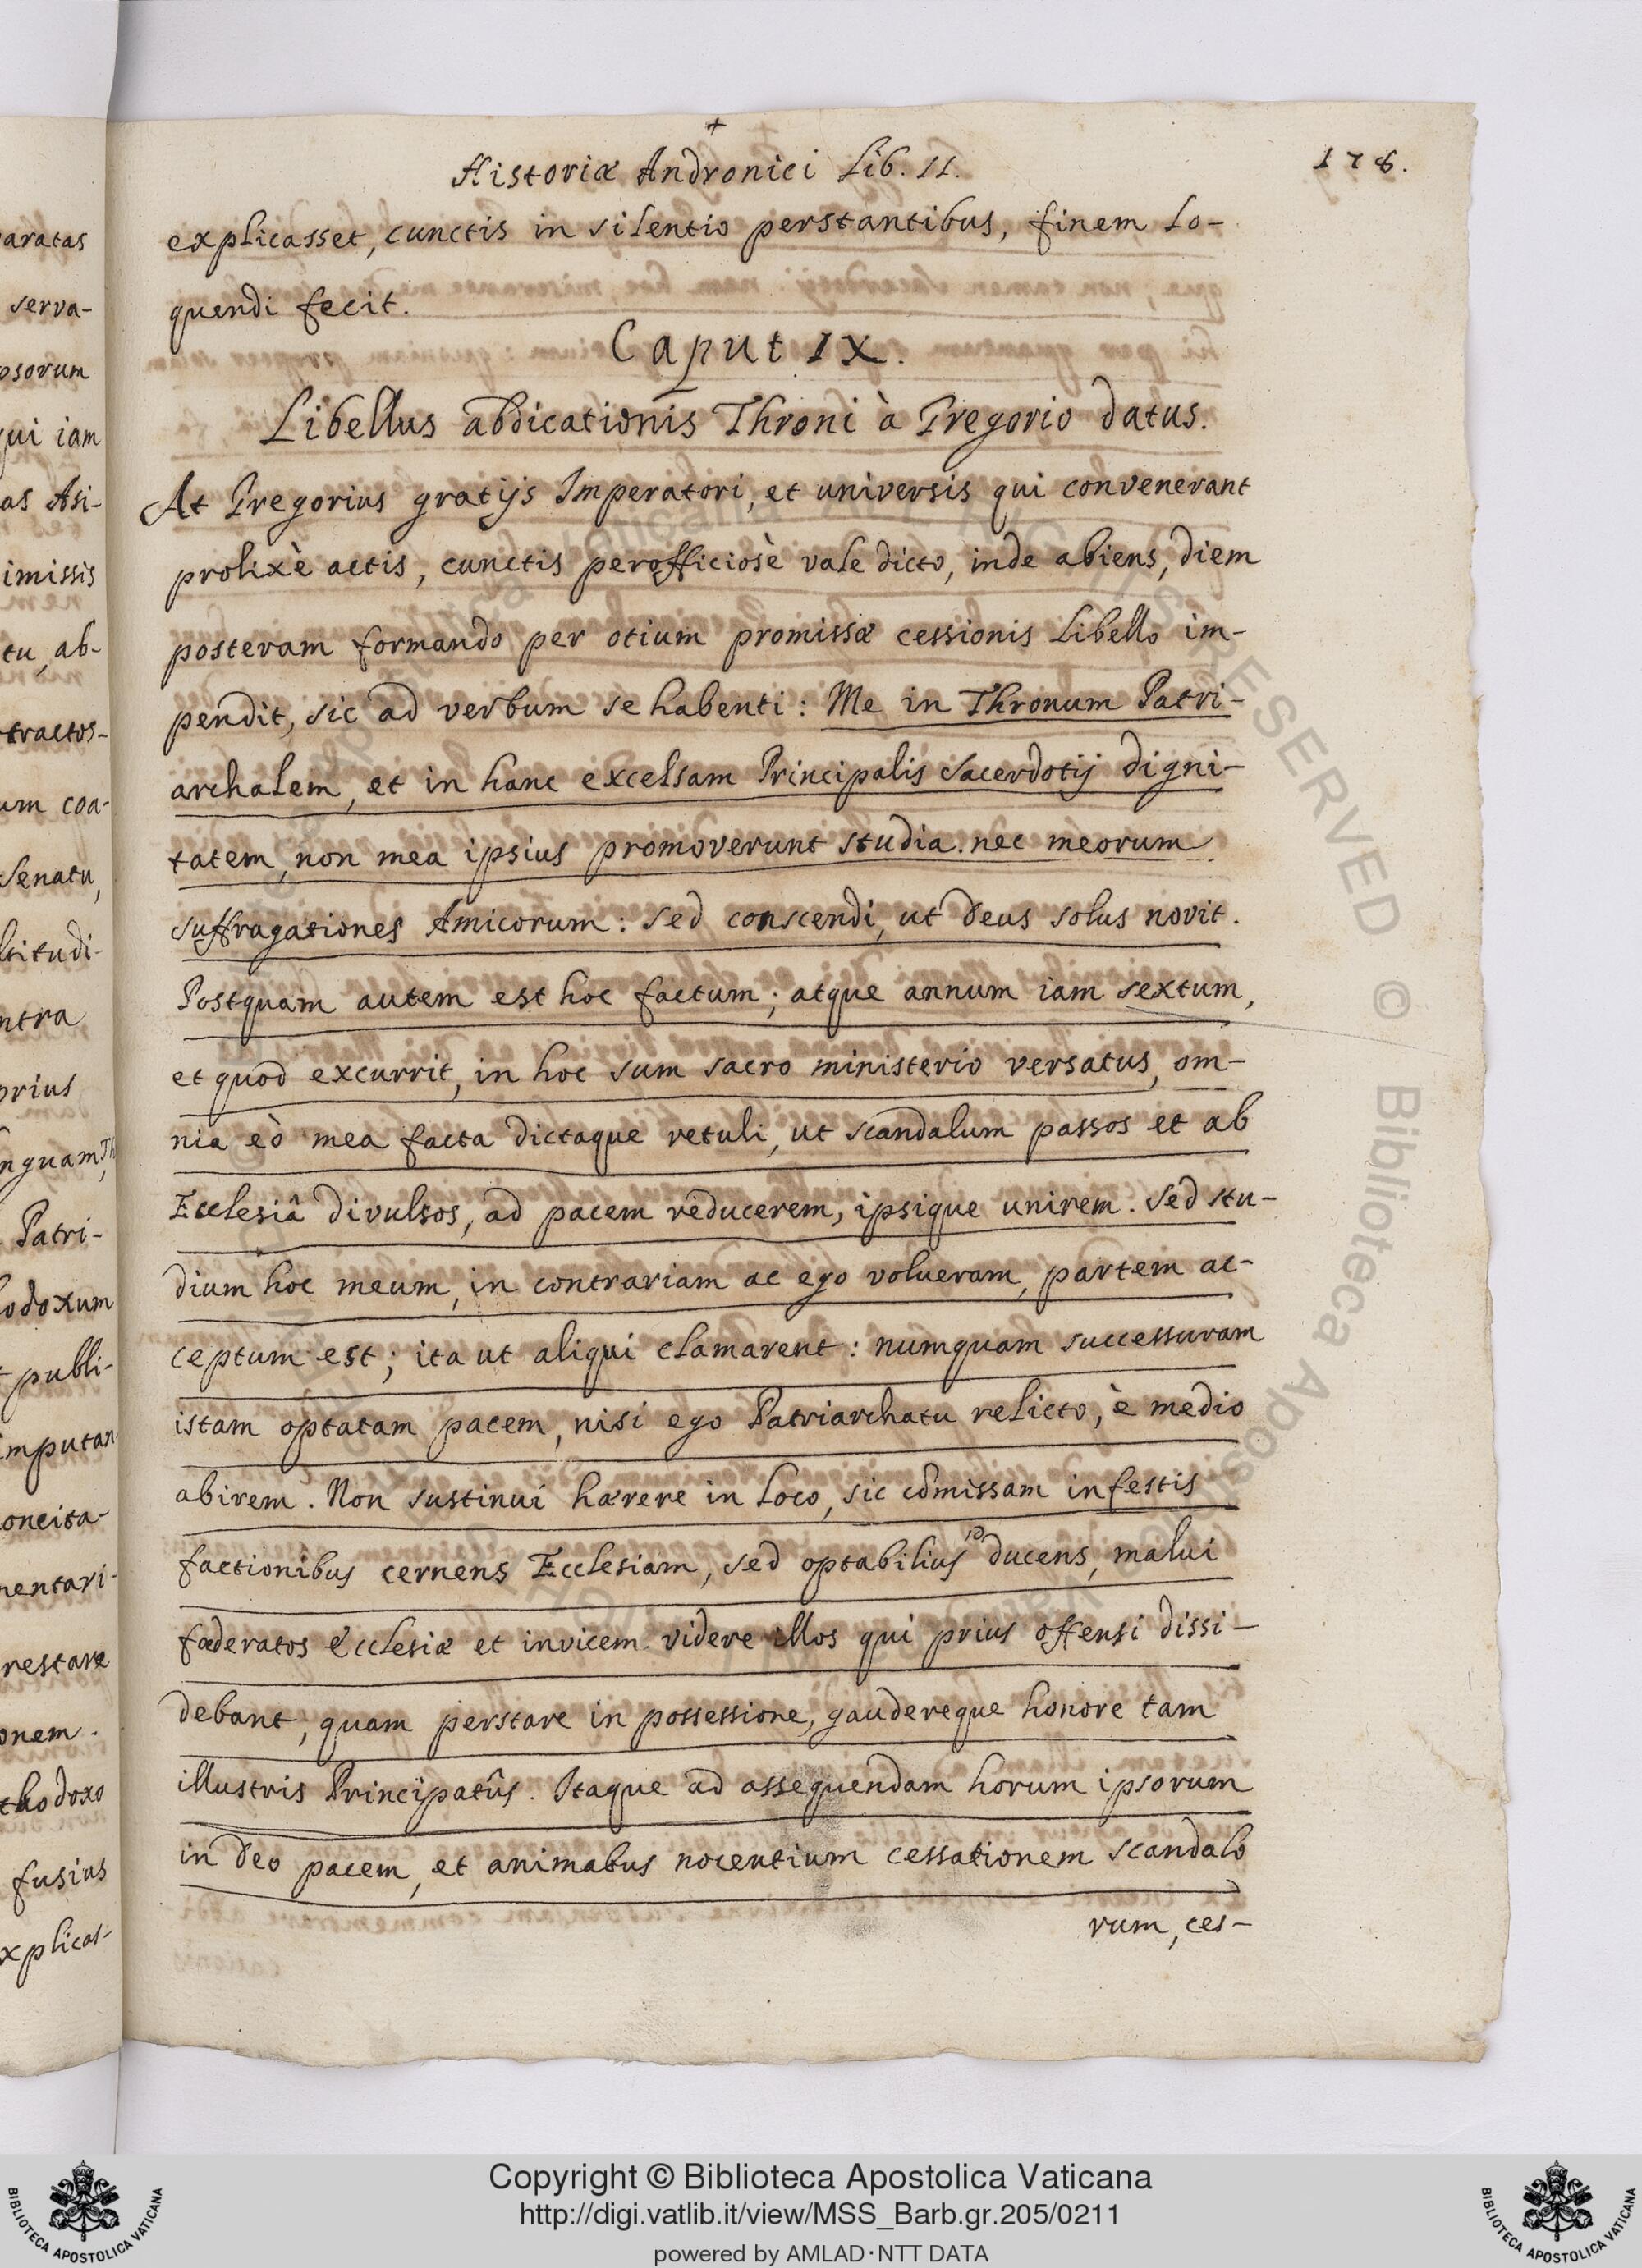 aratas
serva-
osorum
qui iam
as Asi-
imissis
tu, ab-
tractos-
um coa-
Senatu,
ltitudi-
ntra
prius
nquam,
Patri-
hodoxum
publi-
imputan
oncita-
mentari-
restare
onem.
thodoxo
fusius
xplicas-
+
Historiæ Andronici Lib. II.
178.
explicasset, cunctis in silentio perstantibus, finem lo-
quendi fecit.
Caput IX.
Libellus abdicationis Throni à Gregorio datus.
At Gregorius gratijs Imperatori, et universis qui convenerant
prolixè actis, cunctis perofficiosè vale dicto, inde abiens, diem
posteram formando per otium promissæ cessionis Libello im-
pendit, sic ad verbum se habenti: Me in Thronum Patri-
archalem, et in hanc excelsam Principalis Sacerdotij digni-
tatem, non mea ipsius promoverunt studia. nec meorum
suffragationes Amicorum: sed conscendi, ut Deus solus novit.
Postquam autem est hoc factum; atque annum iam sextum,
et quod excurrit, in hoc sum sacro ministerio versatus, om-
nia eò mea facta dictaque retuli, ut scandalum passos et ab
Ecclesiâ divulsos, ad pacem reducerem, ipsique unirem. Sed stu-
dium hoc meum, in contrariam ac ego volueram, partem ac-
ceptum est; ita ut aliqui clamarent: numquam successuram
istam optatam pacem, nisi ego Patriarchatu relicto, è medio
abirem. Non sustinui hærere in loco, sic cõmissam infestis
factionibus cernens Ecclesiam, sed optabilius id ducens, malui
fœderatos Ecclesiæ et invicem videre illos qui prius offensi dissi-
debant, quam perstare in possessione, gaudereque honore tam
illustris Principatûs. Itaque ad assequendam horum ipsorum
in Deo pacem, et animabus nocentium cessationem scandalo
rum, ces-
ALL RIGHTS RESERVED © Biblioteca Apostolica Vaticana
Copyright © Biblioteca Apostolica Vaticana
http://digi.vatlib.it/view/MSS_Barb.gr.205/0211
powered by AMLAD·NTT DATA
BIBLIOTECA APOSTOLICA VATICANA
BIBLIOTECA APOSTOLICA VATICANA